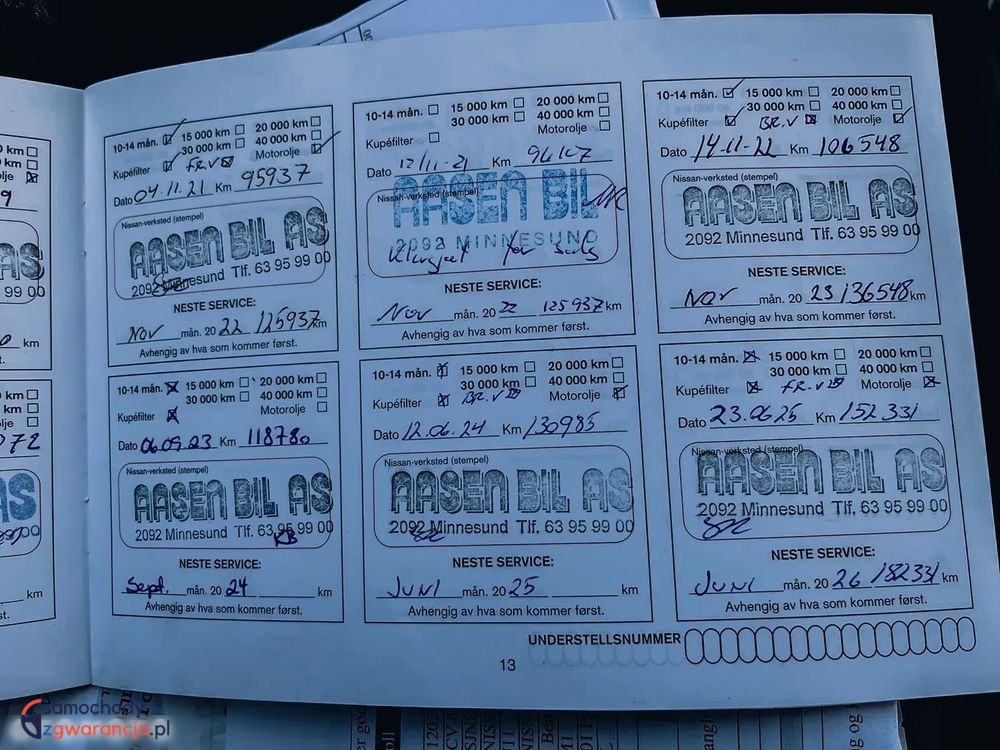 10-14 mån. 15 000 km 20 000 km
30 000 km 40 000 km
Kupéfilter FR.V Motorolje
Dato 04.11.21 Km 95937
Nissan-verksted (stempel)
AASEN BIL AS
2092 Minnesund Tlf. 63 95 99 00
NESTE SERVICE:
Nov mån. 2022 125937 km
Avhengig av hva som kommer først.
10-14 mån. 15 000 km 20 000 km
30 000 km 40 000 km
Kupéfilter Motorolje
Dato 12/11-21 Km 96107
Nissan-verksted (stempel)
AASEN BIL
2092 MINNESUND
Klargjort for salg
NESTE SERVICE:
Nov mån. 2022 125937 km
Avhengig av hva som kommer først.
10-14 mån. 15 000 km 20 000 km
30 000 km 40 000 km
Kupéfilter BR.V Motorolje
Dato 14-11-22 Km 106548
Nissan-verksted (stempel)
AASEN BIL AS
2092 Minnesund Tlf. 63 95 99 00
NESTE SERVICE:
Nov mån. 2023 136548 km
Avhengig av hva som kommer først.
10-14 mån. 15 000 km 20 000 km
30 000 km 40 000 km
Kupéfilter Motorolje
Dato 06.09.23 Km 118780
Nissan-verksted (stempel)
AASEN BIL AS
2092 Minnesund Tlf. 63 95 99 00
KB
NESTE SERVICE:
Sept. mån. 2024 km
Avhengig av hva som kommer først.
10-14 mån. 15 000 km 20 000 km
30 000 km 40 000 km
Kupéfilter BR.V Motorolje
Dato 12.06.24 Km 130985
Nissan-verksted (stempel)
AASEN BIL AS
2092 Minnesund Tlf. 63 95 99 00
NESTE SERVICE:
Juni mån. 2025 km
Avhengig av hva som kommer først.
10-14 mån. 15 000 km 20 000 km
30 000 km 40 000 km
Kupéfilter FR.V Motorolje
Dato 23.06.25 Km 152.331
Nissan-verksted (stempel)
AASEN BIL AS
2092 Minnesund Tlf. 63 95 99 00
NESTE SERVICE:
Juni mån. 2026 182331 km
Avhengig av hva som kommer først.
UNDERSTELLSNUMMER
13
samochody
zgwarancja.pl